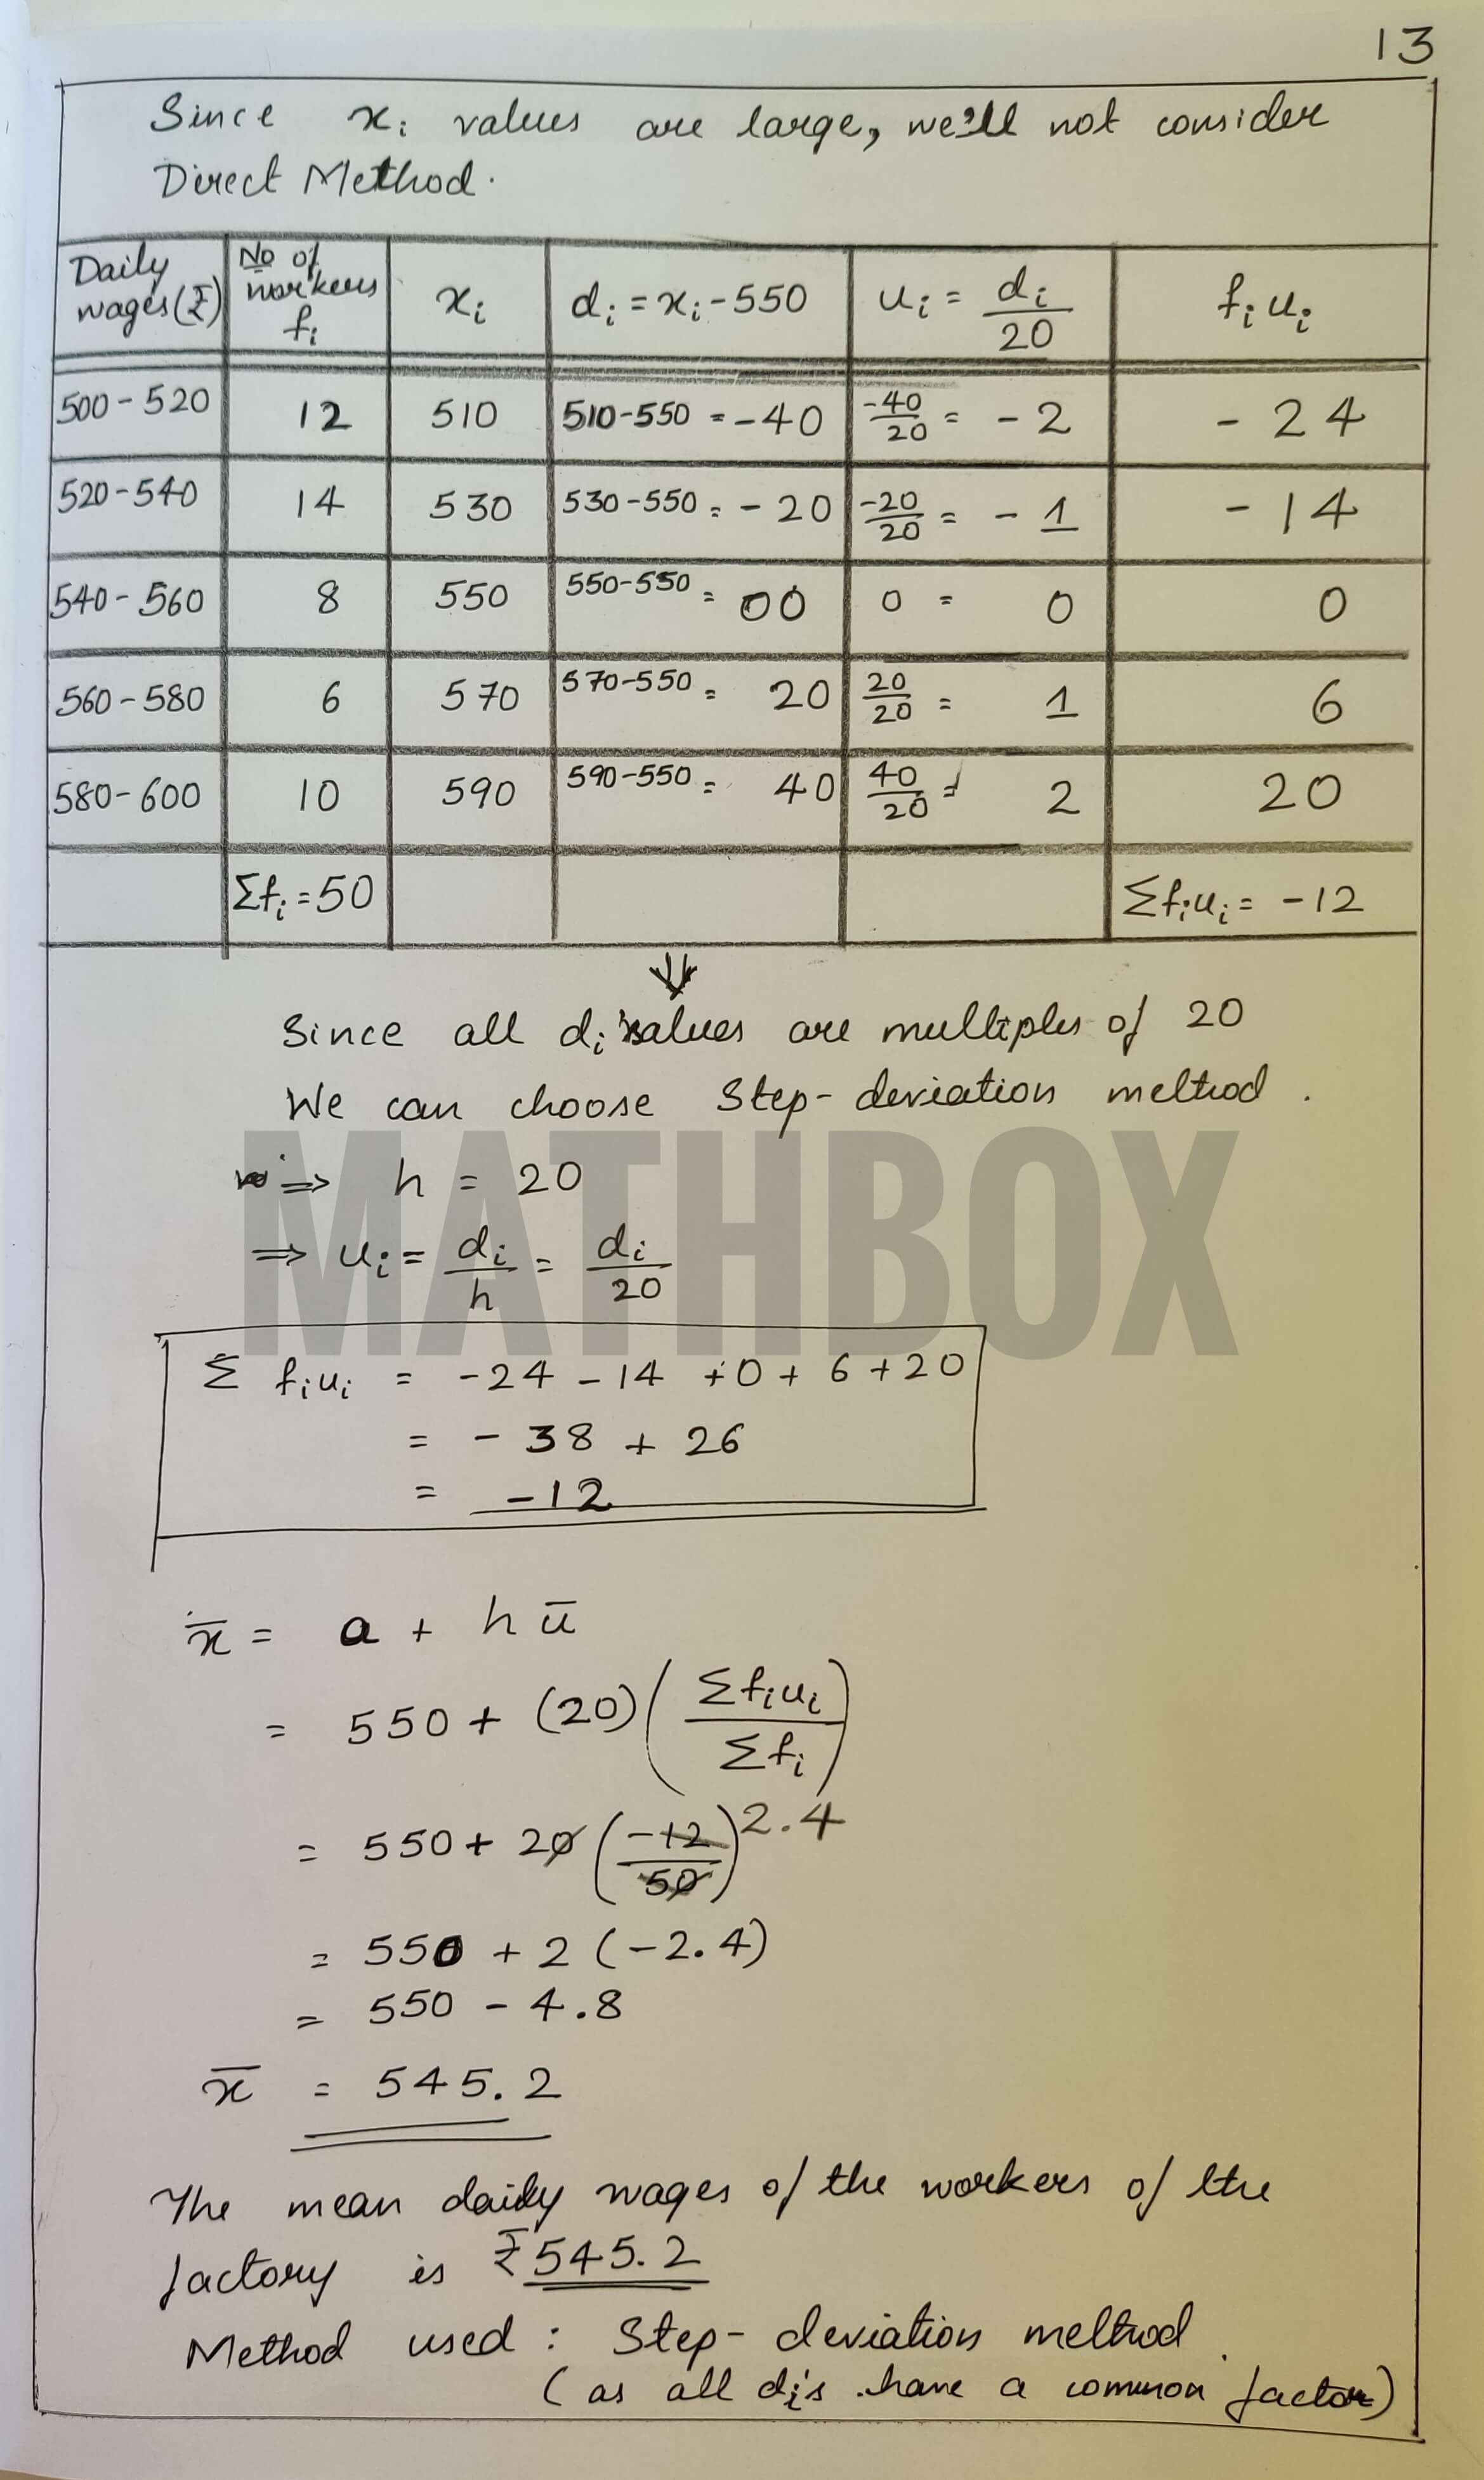 13
Since xᵢ values are large, we'll not consider
Direct Method.
Daily wages (₹) | No of workers fᵢ | xᵢ | dᵢ = xᵢ - 550 | uᵢ = dᵢ/20 | fᵢuᵢ
500 - 520 | 12 | 510 | 510-550 = -40 | -40/20 = -2 | -24
520 - 540 | 14 | 530 | 530-550 = -20 | -20/20 = -1 | -14
540 - 560 | 8 | 550 | 550-550 = 00 | 0 = 0 | 0
560 - 580 | 6 | 570 | 570-550 = 20 | 20/20 = 1 | 6
580 - 600 | 10 | 590 | 590-550 = 40 | 40/20 = 2 | 20
Σfᵢ = 50 | Σfᵢuᵢ = -12
⇓
Since all dᵢ's values are multiples of 20
We can choose Step-deviation method.
⇒ h = 20
⇒ uᵢ = dᵢ/h = dᵢ/20
MATHBOX
Σ fᵢuᵢ = -24 - 14 + 0 + 6 + 20
= - 38 + 26
= -12
x̄ = a + h ū
= 550 + (20) (Σfᵢuᵢ/Σfᵢ)
= 550 + 20 (-12/50) 2.4
= 550 + 2 (-2.4)
= 550 - 4.8
x̄ = 545.2
The mean daily wages of the workers of the
factory is ₹545.2
Method used : Step-deviation method.
(as all dᵢ's have a common factor)